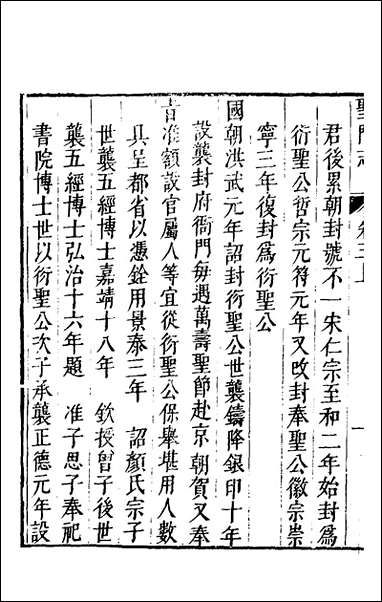 聖門志 卷三上 一
君後累朝封號不一宋仁宗至和二年始封爲
衍聖公哲宗元符元年又改封奉聖公徽宗崇
寧三年復封爲衍聖公
國朝洪武元年詔封衍聖公世襲鑄降銀印十年
設襲封府衙門每遇萬壽聖節赴京朝賀又奉
旨准額設官屬人等宜從衍聖公保舉堪用人數
具呈都省以憑銓用景泰三年 詔顏氏宗子
世襲五經博士嘉靖十八年 欽授曾子後世
襲五經博士弘治十六年題 准子思子奉祀
書院博士世以衍聖公次子承襲正德元年設